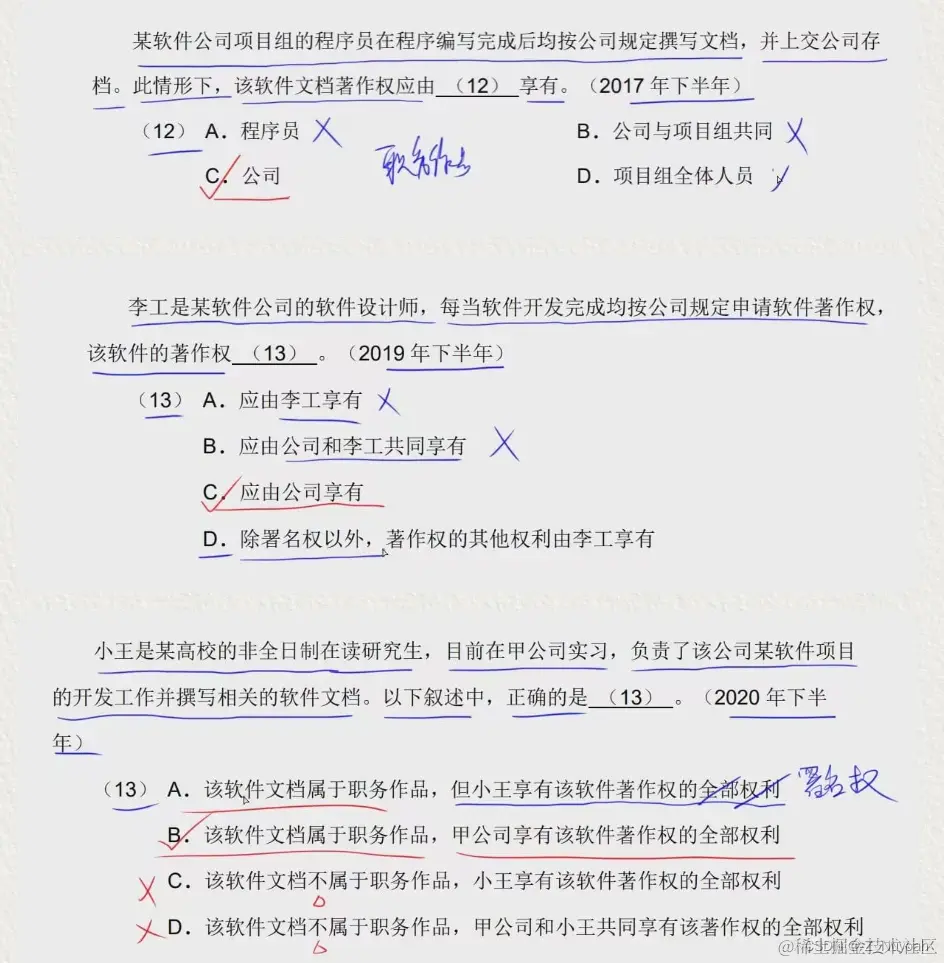 某软件公司项目组的程序员在程序编写完成后均按公司规定撰写文档，并上交公司存
档。此情形下，该软件文档著作权应由（12）享有。（2017 年下半年）
（12） A．程序员 B．公司与项目组共同
职务作品
C．公司 D．项目组全体人员
李工是某软件公司的软件设计师，每当软件开发完成均按公司规定申请软件著作权，
该软件的著作权（13）。（2019 年下半年）
（13） A．应由李工享有
B．应由公司和李工共同享有
C．应由公司享有
D．除署名权以外，著作权的其他权利由李工享有
小王是某高校的非全日制在读研究生，目前在甲公司实习，负责了该公司某软件项目
的开发工作并撰写相关的软件文档。以下叙述中，正确的是（13）。（2020 年下半
年）
（13） A．该软件文档属于职务作品，但小王享有该软件著作权的全部权利 署名权
B．该软件文档属于职务作品，甲公司享有该软件著作权的全部权利
C．该软件文档不属于职务作品，小王享有该软件著作权的全部权利
D．该软件文档不属于职务作品，甲公司和小王共同享有该著作权的全部权利
@稀土掘金技术社区